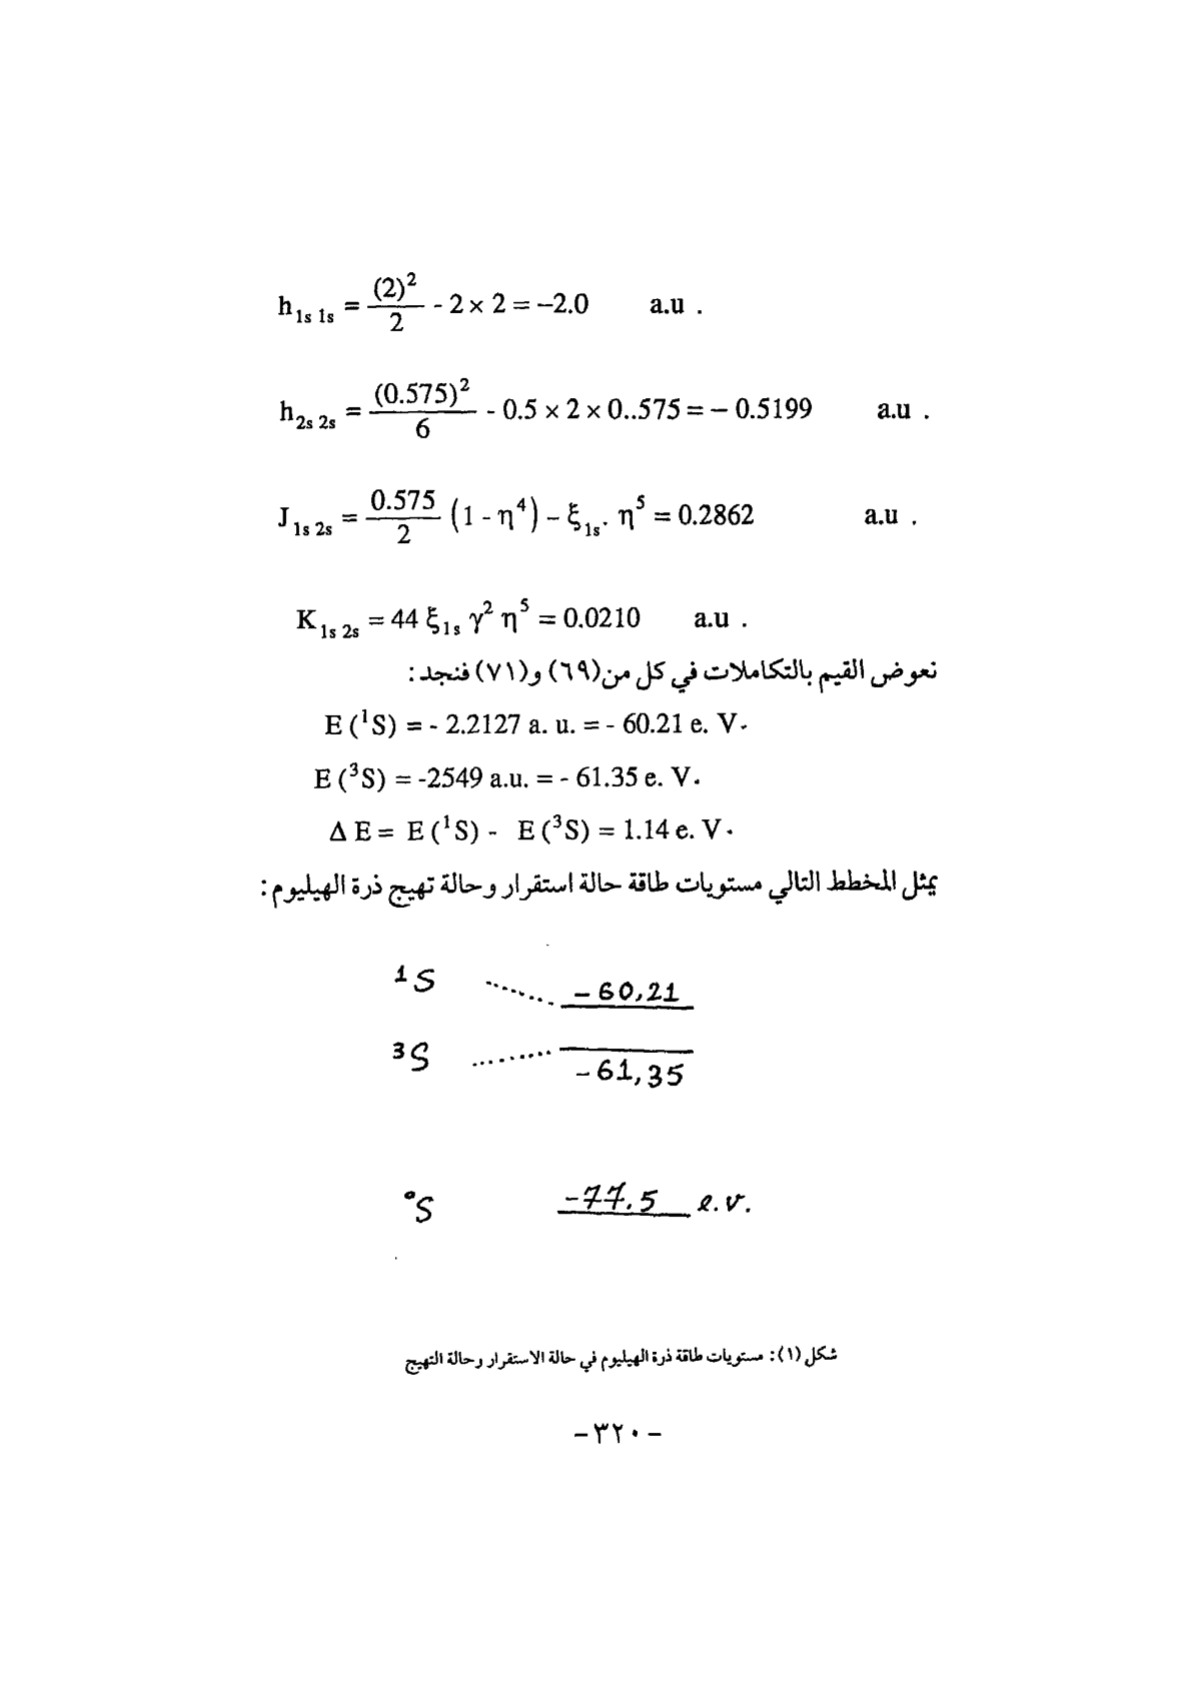 h 1s 1s = (2)² / 2 - 2 × 2 = –2.0 a.u .
h 2s 2s = (0.575)² / 6 - 0.5 × 2 × 0..575 = – 0.5199 a.u .
J 1s 2s = 0.575 / 2 (1 - η⁴) – ξ 1s. η⁵ = 0.2862 a.u .
K 1s 2s = 44 ξ1s γ² η⁵ = 0.0210 a.u .
نعوض القيم بالتكاملات في كل من(٦٩) و(٧١) فنجد :
E (¹S) = - 2.2127 a. u. = - 60.21 e. V.
E (³S) = -2549 a.u. = - 61.35 e. V.
Δ E = E (¹S) - E (³S) = 1.14 e. V.
يمثل المخطط التالي مستويات طاقة حالة استقرار وحالة تهيج ذرة الهيليوم :
¹S ........ – 60,21
³S ......... – 61,35
°S –77.5 e.v.
شكل (١) : مستويات طاقة ذرة الهيليوم في حالة الاستقرار وحالة التهيج
– ٣٢٠ –